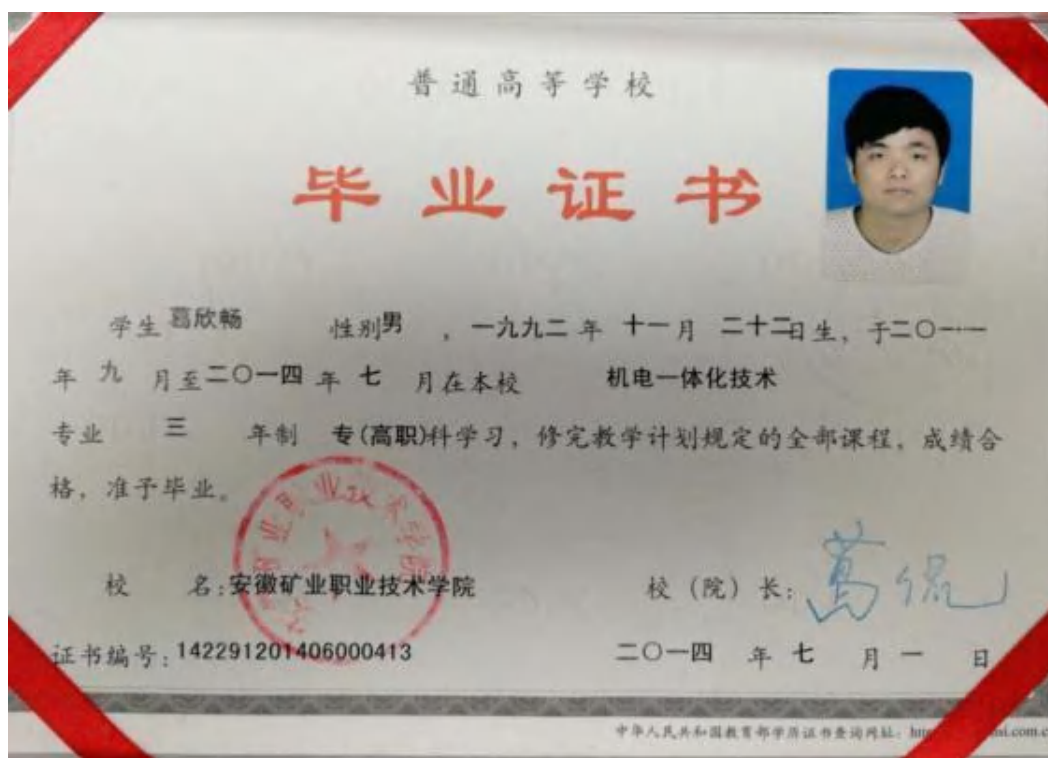 普通高等学校
毕业证书
学生 葛欣畅 性别男 , 一九九二 年 十一 月 二十二日生, 于二〇一一
年 九 月至二〇一四 年 七 月在本校 机电一体化技术
专业 三 年制 专(高职)科学习, 修完教学计划规定的全部课程, 成绩合
格, 准予毕业。
校 名:安徽矿业职业技术学院 校 (院) 长:
证书编号:142291201406000413 二〇一四 年 七 月 一 日
中华人民共和国教育部学历证书查询网址: